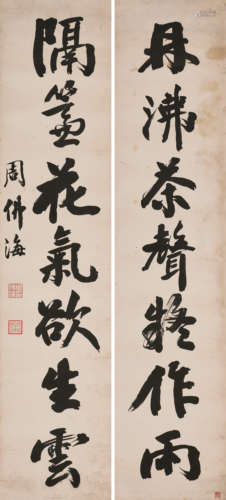 鼎沸茶聲疑作雨
隔簾花氣欲生雲
周佛海